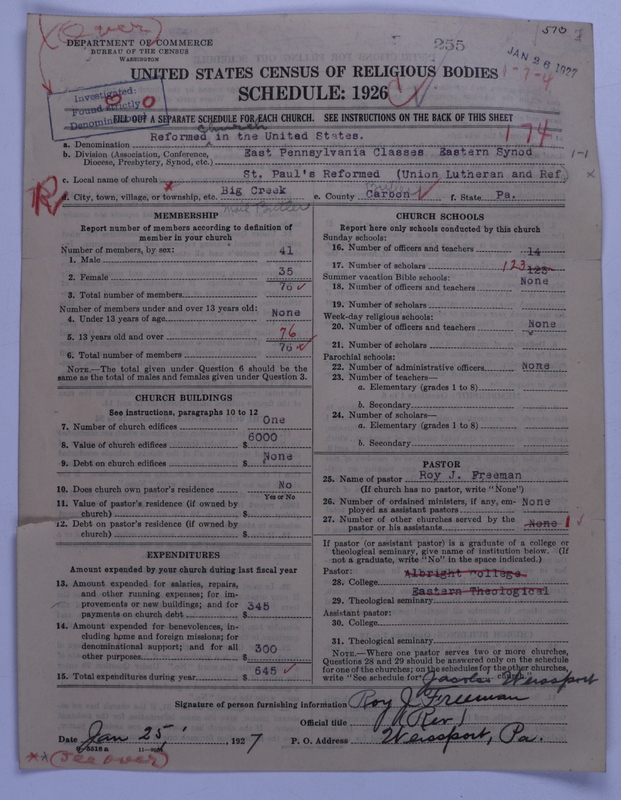 (Over)
570
DEPARTMENT OF COMMERCE
BUREAU OF THE CENSUS
WASHINGTON
255
JAN 26 1927
1-7-4
UNITED STATES CENSUS OF RELIGIOUS BODIES
SCHEDULE: 1926
Investigated:
Found strictly
Denominational
FILL OUT A SEPARATE SCHEDULE FOR EACH CHURCH. SEE INSTRUCTIONS ON THE BACK OF THIS SHEET
174
a. Denomination Reformed church in the United States.
b. Division (Association, Conference, Diocese, Presbytery, Synod, etc.) East Pennsylvania Classes Eastern Synod
1-1
c. Local name of church St. Paul's Reformed (Union Lutheran and Ref)
d. City, town, village, or township, etc. Big Creek e. County Carbon f. State Pa.
MEMBERSHIP
Report number of members according to definition of member in your church
Number of members, by sex:
1. Male 41
2. Female 35
3. Total number of members 76
Number of members under and over 13 years old:
4. Under 13 years of age None
5. 13 years old and over 76
6. Total number of members 76
NOTE.—The total given under Question 6 should be the same as the total of males and females given under Question 3.
CHURCH BUILDINGS
See instructions, paragraphs 10 to 12
7. Number of church edifices One
8. Value of church edifices $ 6000
9. Debt on church edifices $ None
10. Does church own pastor's residence No
Yes or No
11. Value of pastor's residence (if owned by church) $
12. Debt on pastor's residence (if owned by church) $
EXPENDITURES
Amount expended by your church during last fiscal year
13. Amount expended for salaries, repairs, and other running expenses; for improvements or new buildings; and for payments on church debt $ 345
14. Amount expended for benevolences, including home and foreign missions; for denominational support; and for all other purposes $ 300
15. Total expenditures during year $ 645
CHURCH SCHOOLS
Report here only schools conducted by this church
Sunday schools:
16. Number of officers and teachers 14
17. Number of scholars 123 123
Summer vacation Bible schools:
18. Number of officers and teachers None
19. Number of scholars
Week-day religious schools:
20. Number of officers and teachers None
21. Number of scholars
Parochial schools:
22. Number of administrative officers None
23. Number of teachers—
a. Elementary (grades 1 to 8)
b. Secondary
24. Number of scholars—
a. Elementary (grades 1 to 8)
b. Secondary
PASTOR
25. Name of pastor Roy J. Freeman
(If church has no pastor, write "None")
26. Number of ordained ministers, if any, employed as assistant pastors None
27. Number of other churches served by the pastor or his assistants None 1
If pastor (or assistant pastor) is a graduate of a college or theological seminary, give name of institution below. (If not a graduate, write "No" in the space indicated.)
Pastor:
28. College Albright College
29. Theological seminary Eastern Theological
Assistant pastor:
30. College
31. Theological seminary
NOTE.—Where one pastor serves two or more churches, Questions 28 and 29 should be answered only on the schedule for one of the churches; on the schedules for the other churches, write "See schedule for Jacobs Weissport church."
Signature of person furnishing information Roy J. Freeman
Official title (Rev.)
Date Jan 25, 1927 P. O. Address Weissport, Pa.
(See over)